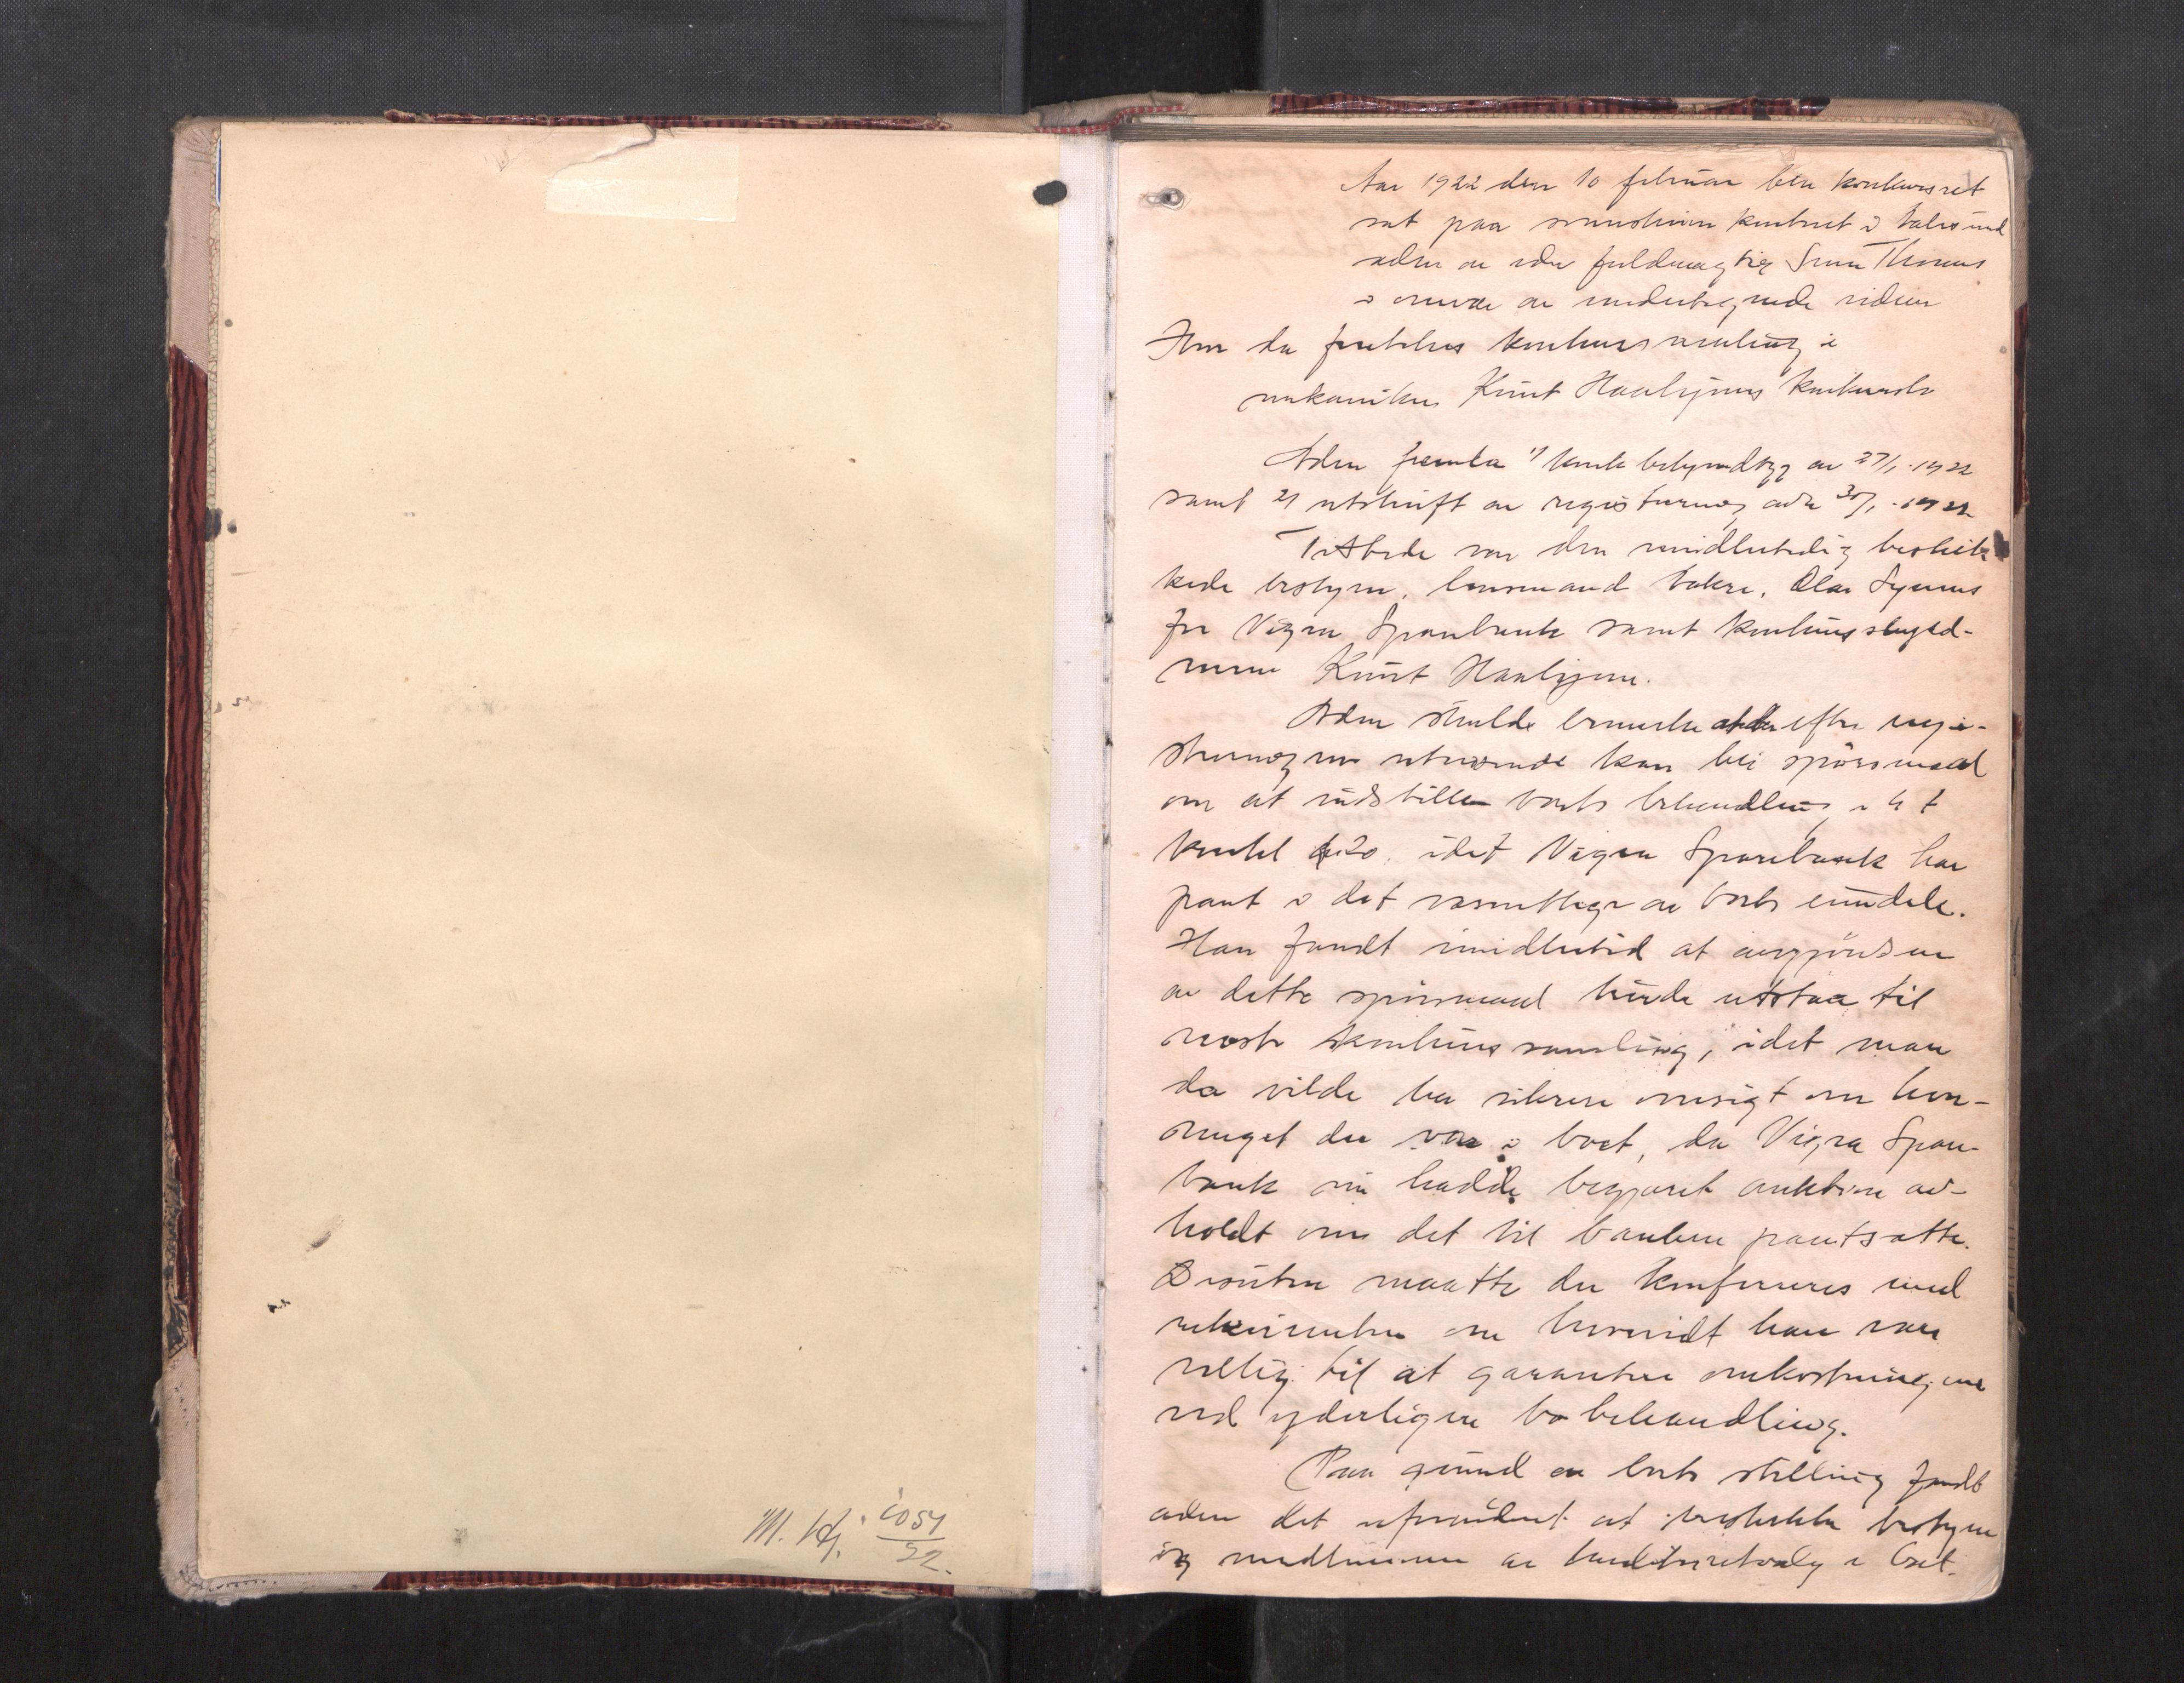 M. Kj. 1054
22.
Aar 1922 den 10 februar blev konkursret
sat paa kontoret i Aalesund
av fuldmægtig Thomas
i nærvær av undertegnede vidner
Hvor da foretokes konkurssamling i
mekaniker Knut Haabjørns konkursbo
fremla 1/ kundgj av 27/1-1922
samt 2/ utskrift av registrering avh 30/1-1922
Tilstede var den midlertidig beskik
kede bostyrer, lensmand Olav Synnes
for Vigra Sparebank samt konkursskyld-
neren Knut Haabjørn.
skulde bemerke at der efter regi-
streringens utvisende kan bli spørsmaal
om at indstille boets behandling i h t
konkl § 20, idet Vigra Sparebank har
pant i det væsentlige av boets eiendele.
Han fandt imidlertid at avgjørelsen
av dette spørsmaal burde utstaa til
næste konkurssamling, idet man
da vilde ha sikrere oversigt om hvor-
meget der var i boet, da Vigra Spare-
bank nu hadde begjæret auktion av-
holdt over det til banken pantsatte.
Desuten maatte der konfereres med
rekvirenten om hvorvidt han var
villig til at garantere omkostningene
ved yderligere bobehandling.
Paa grund av boets stilling fandt
det ufornødent at beskikke bostyre
og medlemmer av kreditorutvalg i boet.